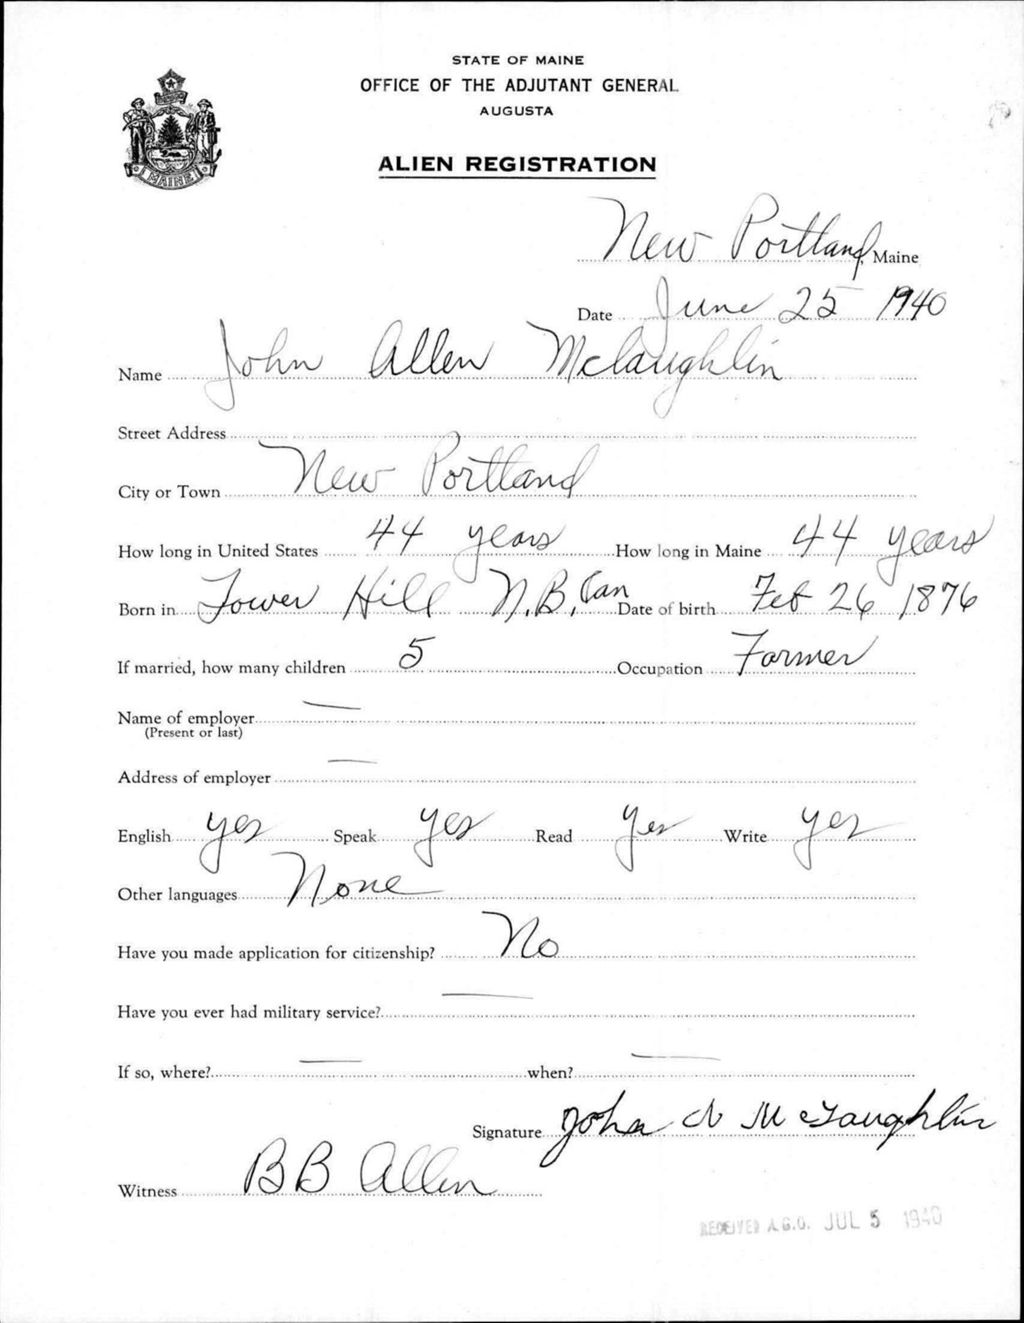 STATE OF MAINE
OFFICE OF THE ADJUTANT GENERAL
AUGUSTA
ALIEN REGISTRATION
MAINE
New Portland, Maine
Date June 25 1940
Name John Allen Mclaughlin
Street Address
City or Town New Portland
How long in United States 44 years How long in Maine 44 years
Born in Tower Hill N.B, Can Date of birth Feb 26 1876
If married, how many children 5 Occupation Farmer
Name of employer —
(Present or last)
Address of employer —
English yes Speak yes Read yes Write yes
Other languages None
Have you made application for citizenship? No
Have you ever had military service? —
If so, where? — when? —
Signature John A McLaughlin
Witness B B Allen
RECEIVED A.G.O. JUL 5 1940